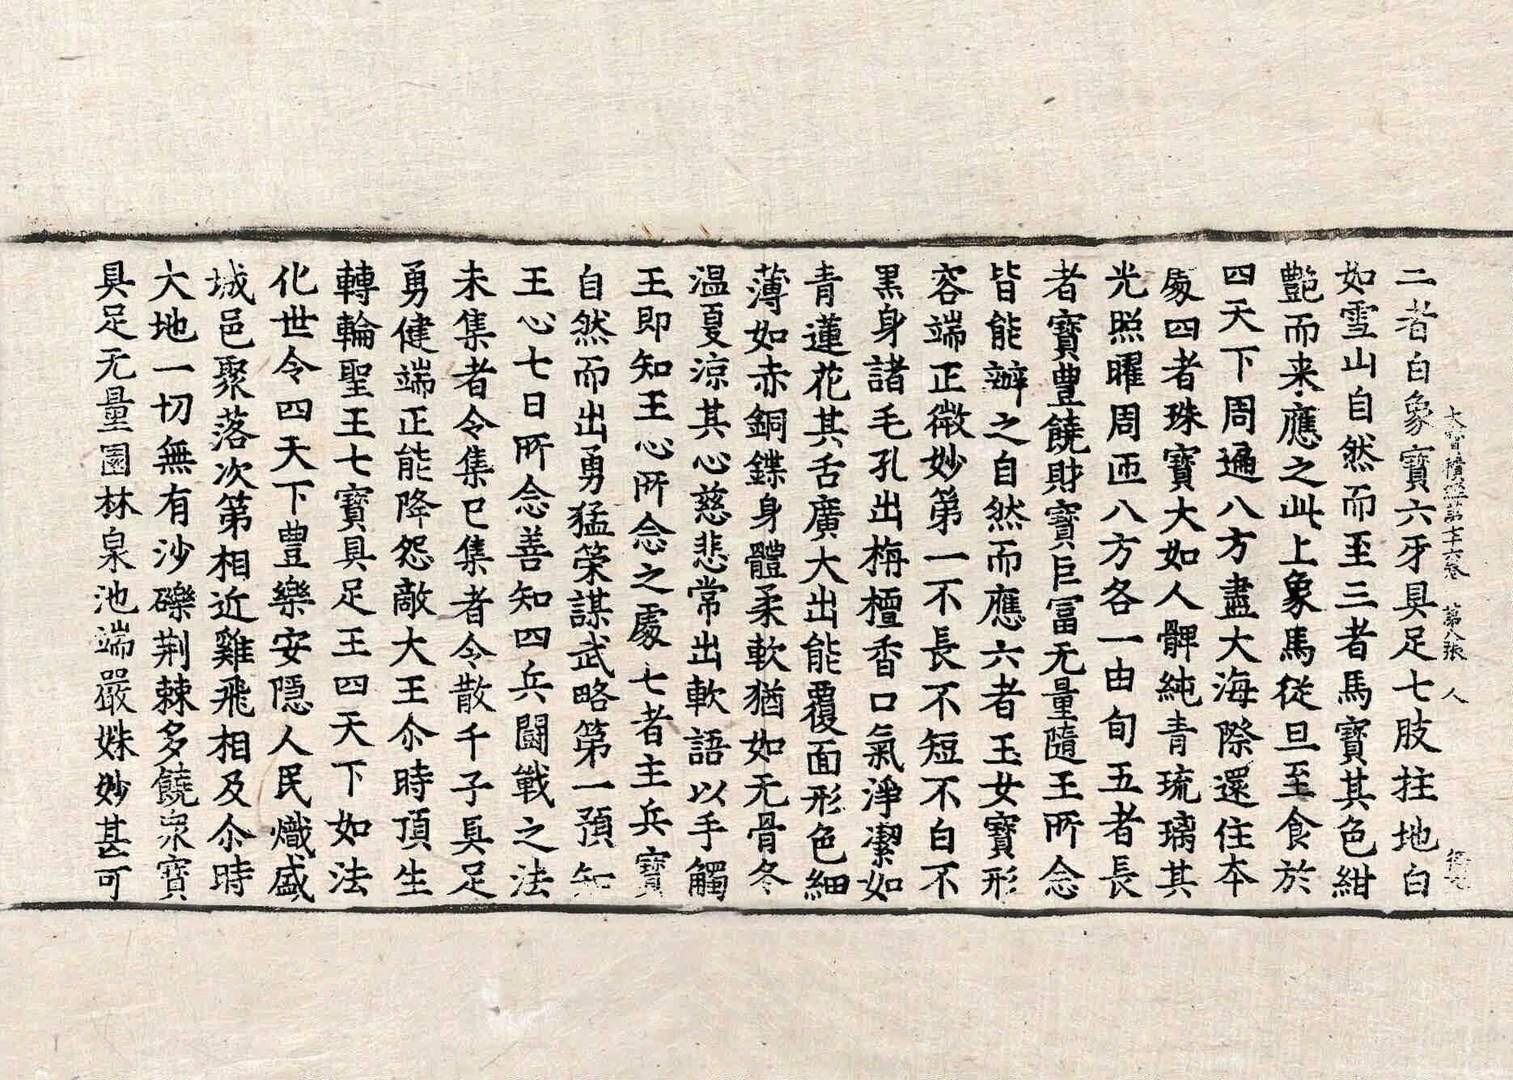 大智積經第十六卷　第八張　人
二者白象寶六牙具足七肢拄地白
如雪山自然而至三者馬寶其色紺
艷而来應之此上象馬從旦至食於
四天下周遍八方盡大海際還住夲
處四者珠寶大如人髀純青琉璃其
光照曜周匝八方各一由旬五者長
者寶豊饒財寶巨冨无量隨王所念
皆能辦之自然而應六者玉女寶形
容端正微妙第一不長不短不白不
黒身諸毛孔出栴檀香口氣淨潔如
青蓮花其舌廣大出能覆面形色細
薄如赤銅鍱身體柔軟猶如无骨冬
温夏涼其心慈悲常出軟語以手觸
王即知王心所念之處七者主兵寶
自然而出勇猛策謀武略第一預知
王心七日所念善知四兵闘戰之法
未集者令集已集者令散千子具足
勇健端正能降怨敵大王尒時頂生
轉輪聖王七寶具足王四天下如法
化世令四天下豊樂安隱人民熾盛
城邑聚落次第相近雞飛相及尒時
大地一切無有沙礫荆棘多饒泉寶
具足无量園林泉池端嚴姝妙甚可